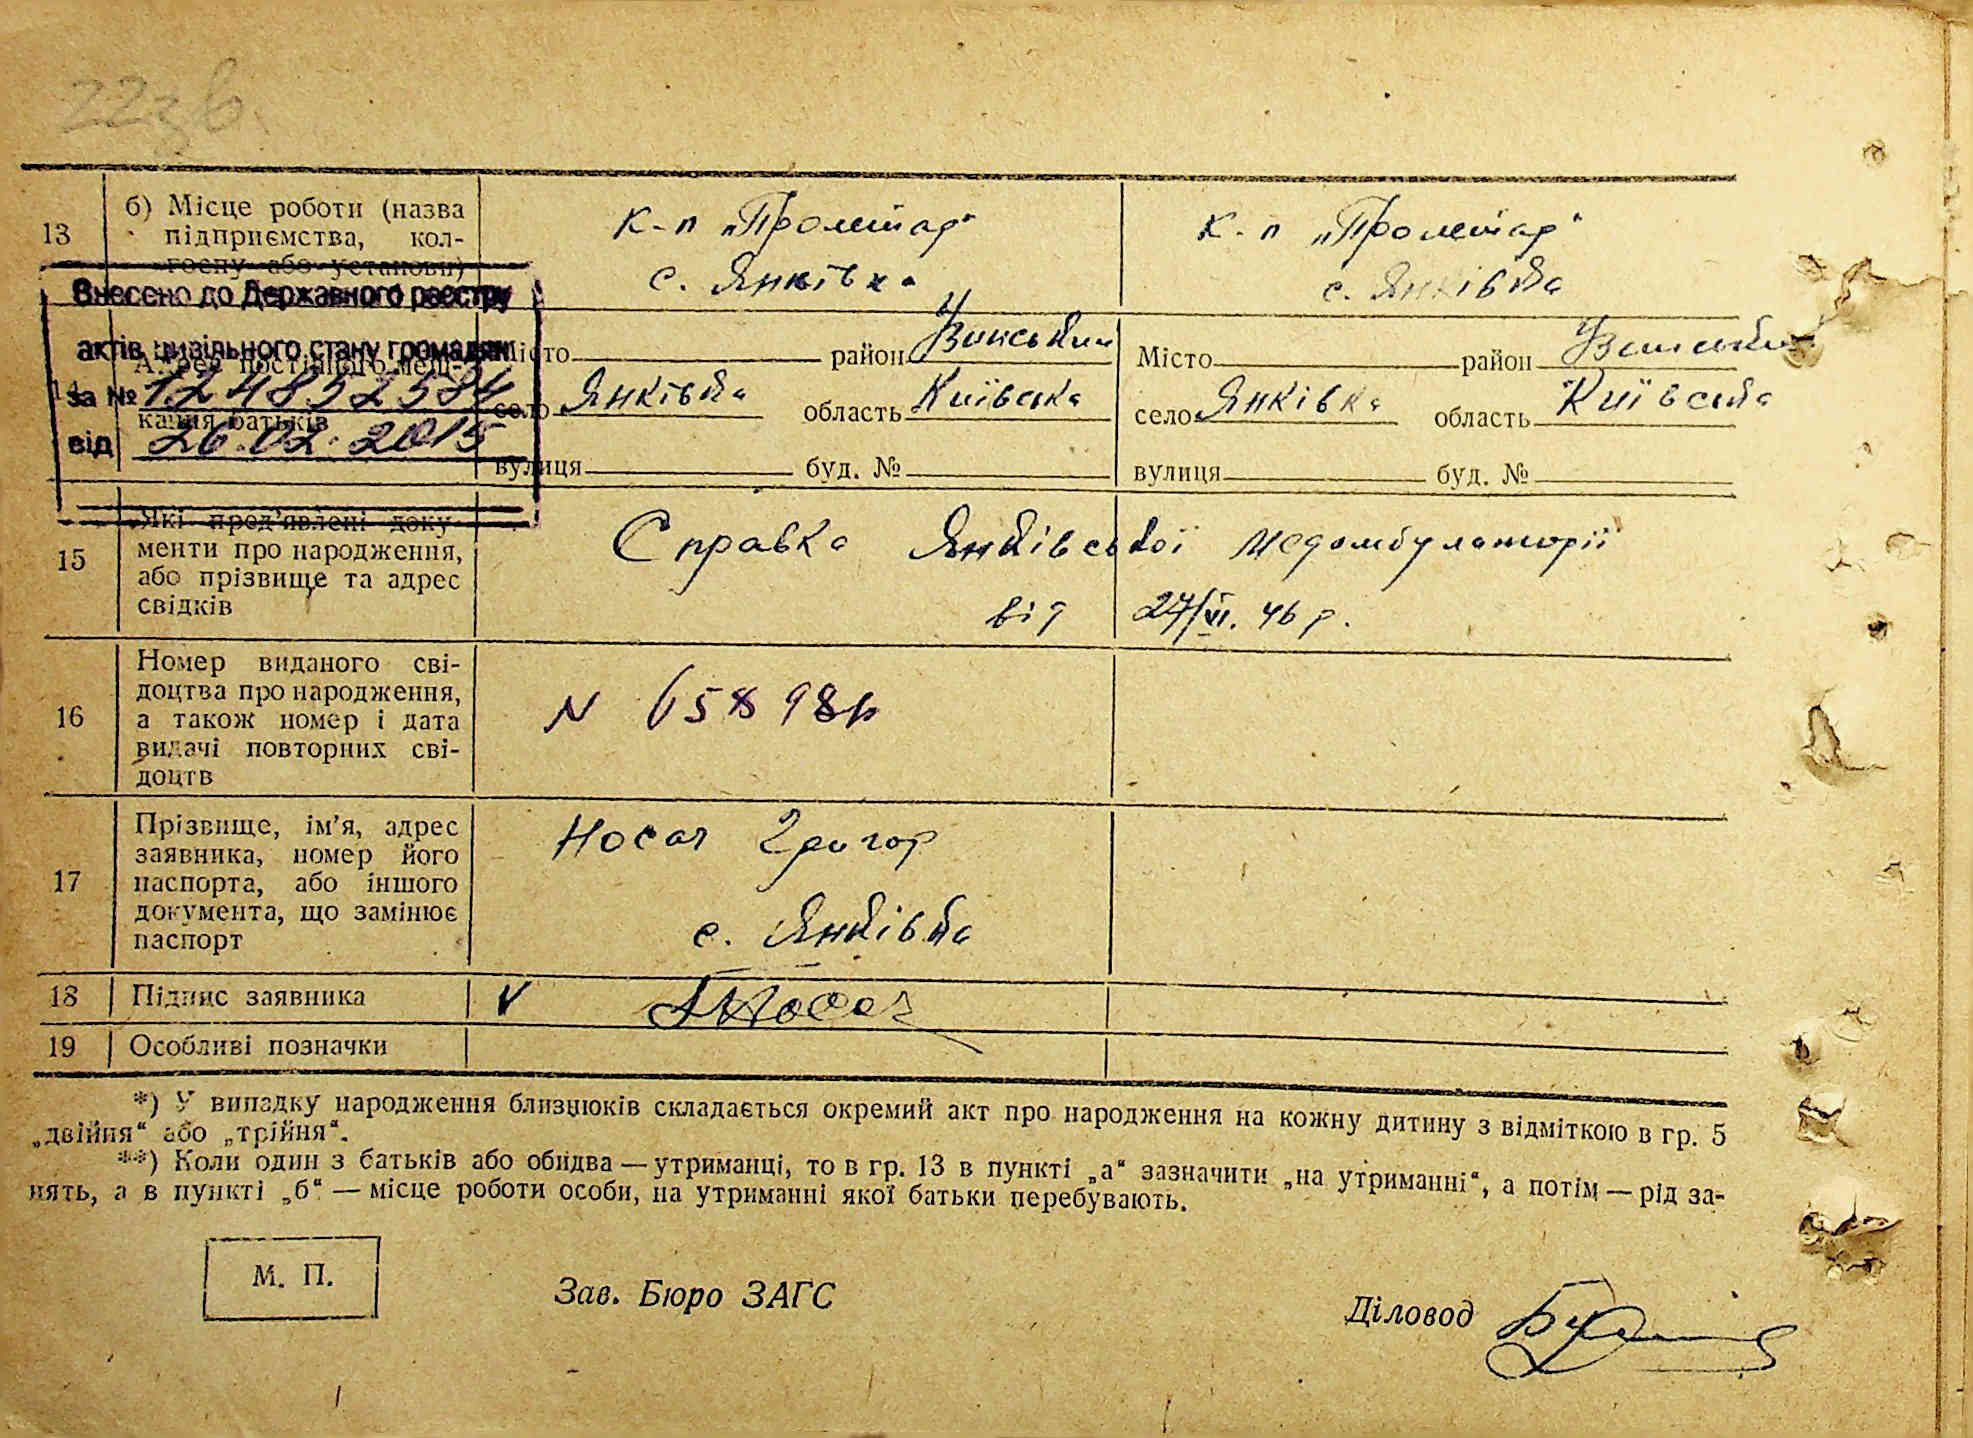 22зв.
13
б) Місце роботи (назва
підприємства, кол-
госпу або установи)
к-п „Пролетар“
с. Янківка
к-п „Пролетар“
с. Янківка
Внесено до Державного реєстру
актів цивільного стану громадян
за № 124852584
від 26.02.2015
14
Адрес постійного меш-
кання батьків
Місто район Узинський
село Янківка область Київська
вулиця буд. №
Місто район Узинський
село Янківка область Київська
вулиця буд. №
15
Які пред’явлені доку-
менти про народження,
або прізвище та адрес
свідків
Справка Янківської медамбулаторії
від 27/VI. 46 р.
16
Номер виданого сві-
доцтва про народження,
а також номер і дата
видачі повторних сві-
доцтв
N
17
Прізвище, ім’я, адрес
заявника, номер його
паспорта, або іншого
документа, що замінює
паспорт
Носач Григор
с. Янківка
18
Підпис заявника
V Носач
19
Особливі позначки
*) У випадку народження близнюків складається окремий акт про народження на кожну дитину з відміткою в гр. 5
„двійня“ або „трійня“.
**) Коли один з батьків або обидва — утриманці, то в гр. 13 в пункті „а“ зазначити „на утриманні“, а потім — рід за-
нять, а в пункті „б“ — місце роботи особи, на утриманні якої батьки перебувають.
М. П.
Зав. Бюро ЗАГС
Діловод